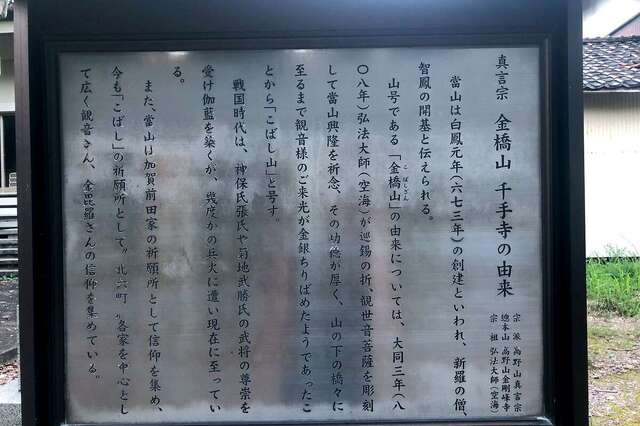 真言宗 金橋山 千手寺の由来
宗派 高野山真言宗
総本山 高野山金剛峰寺
宗祖 弘法大師(空海)
當山は白鳳元年(六七三年)の創建といわれ、新羅の僧、
智鳳の開基と伝えられる。
山号である「金橋山」の由来については、大同三年(八
こばしざん
〇八年)弘法大師(空海)が巡錫の折、観世音菩薩を彫刻
して當山興隆を祈念、その功徳が厚く、山の下の橋々に
至るまで観音様のご来光が金銀ちりばめたようであったこ
とから「こばし山」と号す。
戦国時代は、神保氏張氏や菊地武勝氏の武将の尊崇を
受け伽藍を築くが、幾度かの兵火に遭い現在に至ってい
る。
また、當山は加賀前田家の祈願所として信仰を集め、
今も「こばし」の祈願所として〟北六町〟各家を中心とし
て広く観音さん、金毘羅さんの信仰を集めている。